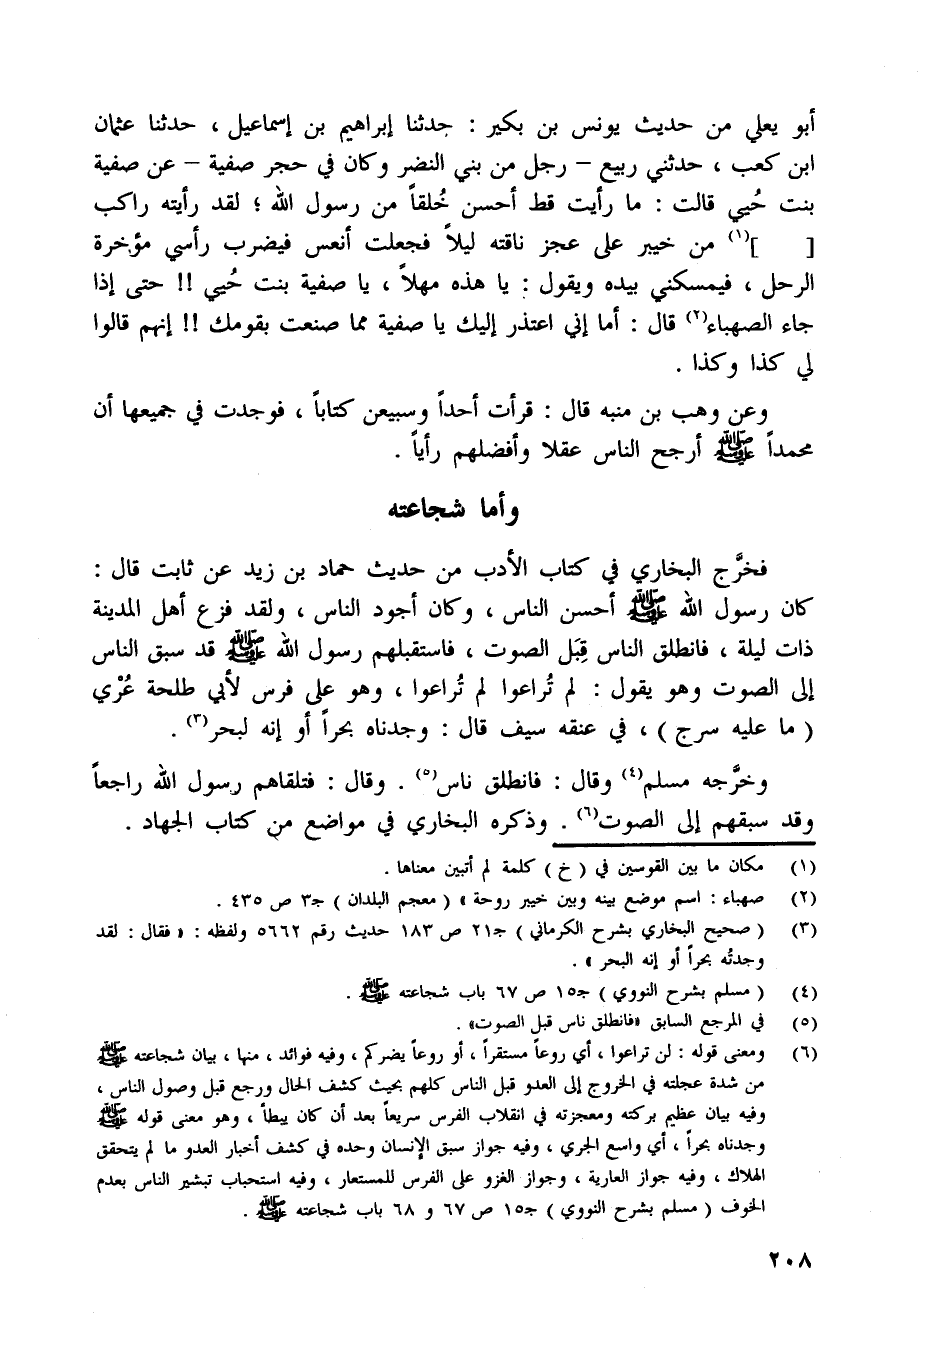 أبو يعلي من حديث يونس بن بكير : حدثنا إبراهيم بن إسماعيل ، حدثنا عثمان
ابن كعب ، حدثني ربيع – رجل من بني النضر وكان في حجر صفية – عن صفية
بنت حُيي قالت : ما رأيت قط أحسن خُلقاً من رسول الله ؛ لقد رأيته راكب
[ ](١) من خيبر على عجز ناقته ليلاً فجعلت أنعس فيضرب رأسي مؤخرة
الرحل ، فيمسكني بيده ويقول : يا هذه مهلاً ، يا صفية بنت حُيي !! حتى إذا
جاء الصهباء(٢) قال : أما إني اعتذر إليك يا صفية مما صنعت بقومك !! إنهم قالوا
لي كذا وكذا .
وعن وهب بن منبه قال : قرأت أحداً وسبيعن كتاباً ، فوجدت في جميعها أن
محمداً ﷺ أرجح الناس عقلا وأفضلهم رأياً .
وأما شجاعته
فخرَّج البخاري في كتاب الأدب من حديث حماد بن زيد عن ثابت قال :
كان رسول الله ﷺ أحسن الناس ، وكان أجود الناس ، ولقد فزع أهل المدينة
ذات ليلة ، فانطلق الناس قِبَل الصوت ، فاستقبلهم رسول الله ﷺ قد سبق الناس
إلى الصوت وهو يقول : لم تُراعوا لم تُراعوا ، وهو على فرس لأبي طلحة عُرْي
( ما عليه سرج ) ، في عنقه سيف قال : وجدناه بحراً أو إنه لبحر(٣) .
وخرَّجه مسلم(٤) وقال : فانطلق ناس(٥) . وقال : فتلقاهم رسول الله راجعاً
وقد سبقهم إلى الصوت(٦) . وذكره البخاري في مواضع من كتاب الجهاد .
(١) مكان ما بين القوسين في ( خ ) كلمة لم أتبين معناها .
(٢) صهباء : اسم موضع بينه وبين خيبر روحة » ( معجم البلدان ) جـ٣ ص ٤٣٥ .
(٣) ( صحيح البخاري بشرح الكرماني ) جـ٢١ ص ١٨٣ حديث رقم ٥٦٦٢ ولفظه : « فقال : لقد
وجدتُه بحراً أو إنه البحر » .
(٤) ( مسلم بشرح النووي ) جـ١٥ ص ٦٧ باب شجاعته ﷺ .
(٥) في المرجع السابق «فانطلق ناس قبل الصوت» .
(٦) ومعنى قوله : لن تراعوا ، أي روعاً مستقراً ، أو روعاً يضركم ، وفيه فوائد ، منها ، بيان شجاعته ﷺ
من شدة عجلته في الخروج إلى العدو قبل الناس كلهم بحيث كشف الحال ورجع قبل وصول الناس ،
وفيه بيان عظيم بركته ومعجزته في انقلاب الفرس سريعاً بعد أن كان يبطأ ، وهو معنى قوله ﷺ
وجدناه بحراً ، أي واسع الجري ، وفيه جواز سبق الإنسان وحده في كشف أخبار العدو ما لم يتحقق
الهلاك ، وفيه جواز العارية ، وجواز الغزو على الفرس للمستعار ، وفيه استحباب تبشير الناس بعدم
الخوف ( مسلم بشرح النووي ) جـ١٥ ص ٦٧ و ٦٨ باب شجاعته ﷺ .
٢٠٨